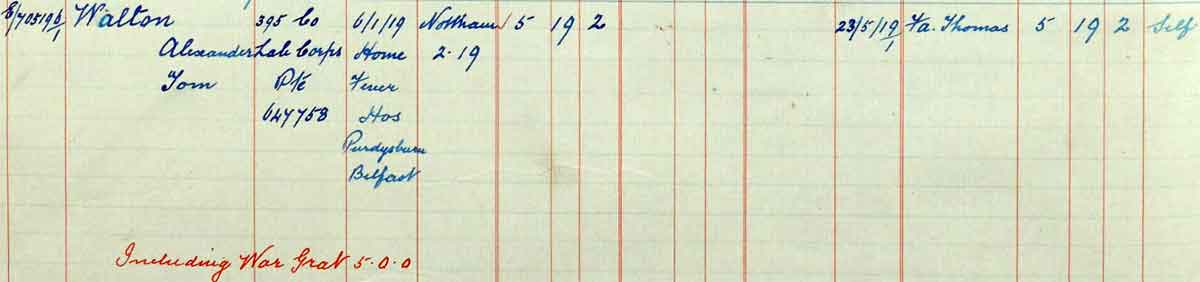 E/705196/1 Walton 395 Co 6/1/19 Northam 5 19 2 23/5/19/1 Fa. Thomas 5 19 2 Self
Alexander Lab Corps Home 2.19
Tom Pte Fever
647758 Hos
Purdysburn
Belfast
Including War Grat 5.0.0